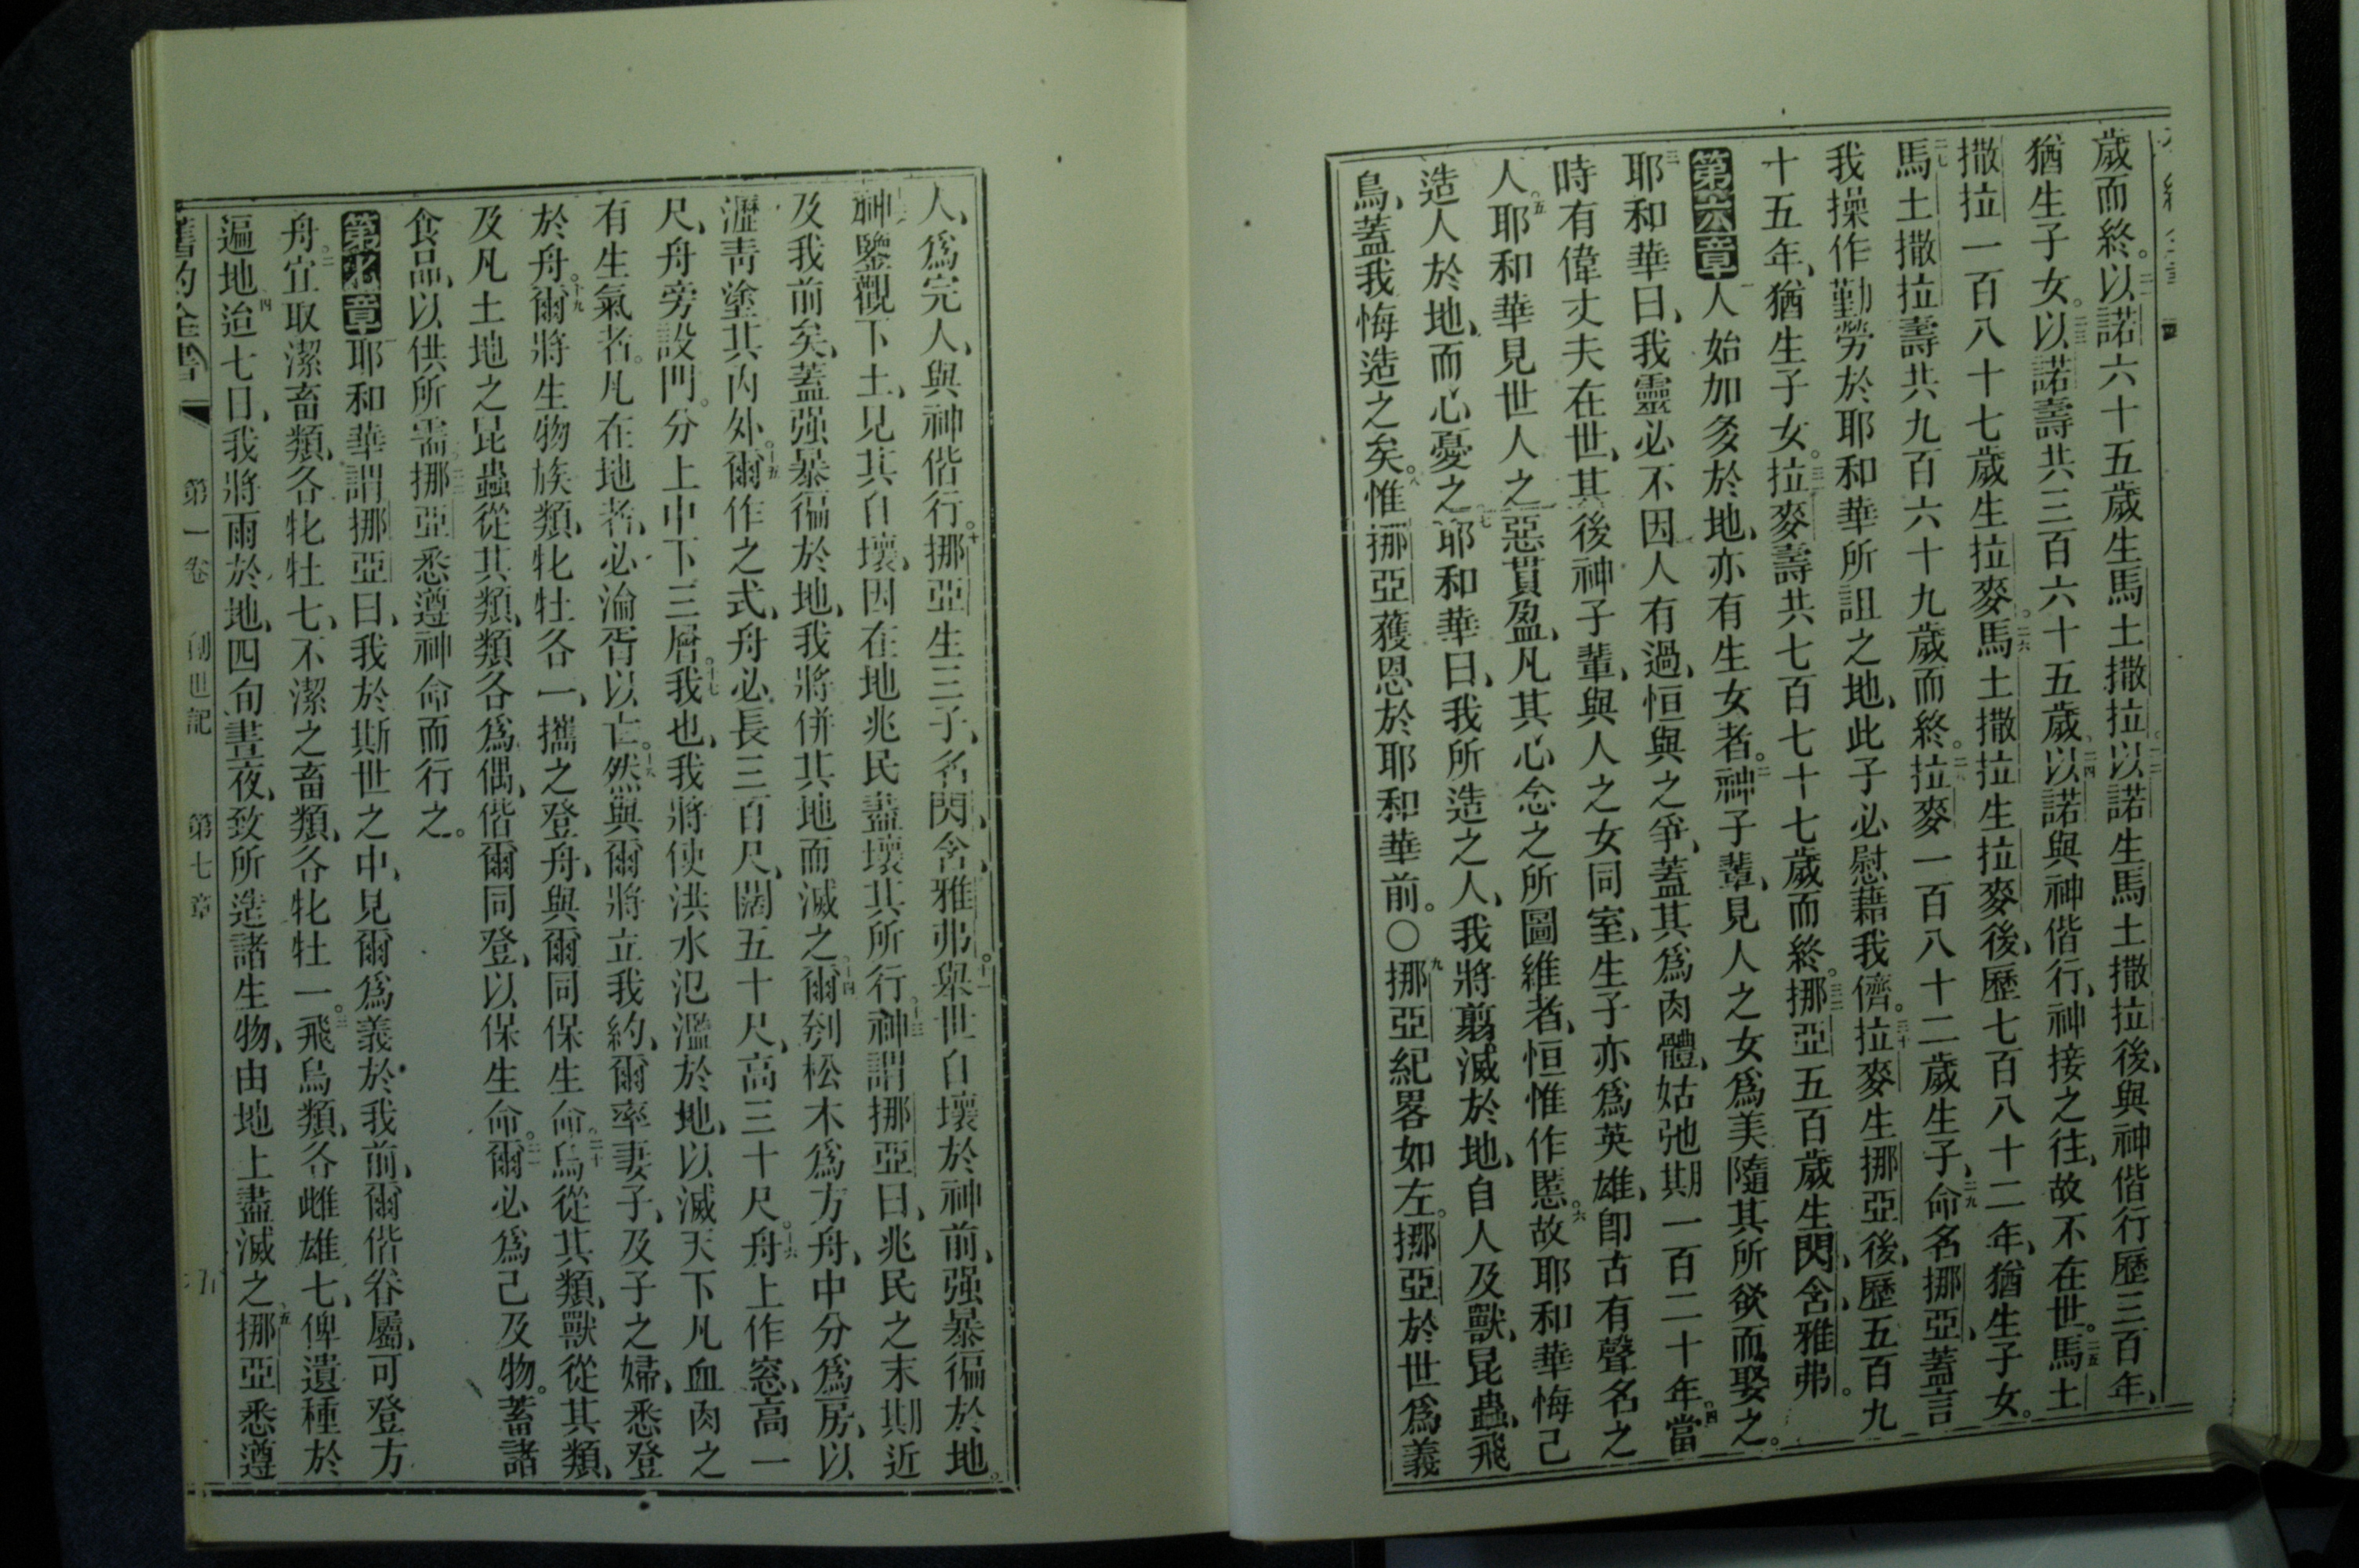 歲而終。二一以諾六十五歲生馬土撒拉。二二以諾生馬土撒拉後、與神偕行歷三百年、
猶生子女。二三以諾壽共三百六十五歲、二四以諾與神偕行、神接之往、故不在世。二五馬土
撒拉一百八十七歲生拉麥。二六馬土撒拉生拉麥後、歷七百八十二年、猶生子女。
二七馬土撒拉壽共九百六十九歲而終。二八拉麥一百八十二歲生子、二九命名挪亞、蓋言
我操作勤勞於耶和華所詛之地、此子必慰藉我儕。三十拉麥生挪亞後、歷五百九
十五年、猶生子女。三一拉麥壽共七百七十七歲而終。三二挪亞五百歲生閃、含、雅弗。
第六章一人始加多於地、亦有生女者。二神子輩、見人之女爲美隨其所欲而娶之。
三耶和華曰、我靈必不因人有過、恒與之爭、蓋其爲肉體、姑弛期一百二十年。四當
時有偉丈夫在世、其後神子輩、與人之女同室、生子亦爲英雄、卽古有聲名之
人。五耶和華見世人之惡貫盈、凡其心念之所圖維者、恒惟作慝。六故耶和華悔己
造人於地、而心憂之、七耶和華曰、我所造之人、我將翦滅於地、自人及獸、昆蟲、飛
鳥、蓋我悔造之矣。八惟挪亞獲恩於耶和華前。〇九挪亞紀畧如左。挪亞於世爲義
人、爲完人、與神偕行。十挪亞生三子、名閃、含、雅弗。十一舉世自壞於神前、强暴徧於地。
神鑒觀下土、見其自壞、因在地兆民盡壞其所行。十三神謂挪亞曰、兆民之末期近
及我前矣、蓋强暴徧於地、我將併其地而滅之、十四爾刳松木爲方舟、中分爲房、以
瀝靑塗其內外。十五爾作之式、舟必長三百尺、闊五十尺、高三十尺。十六舟上作窓、高一
尺、舟旁設門。分上中下三層。十七我也、我將使洪水氾濫於地、以滅天下凡血肉之
有生氣者。凡在地者、必淪胥以亡。十八然與爾將立我約、爾率妻子、及子之婦、悉登
於舟。十九爾將生物族類、牝牡各一、攜之登舟、與爾同保生命。二十鳥從其類、獸從其類、
及凡土地之昆蟲從其類、類各爲偶、偕爾同登、以保生命。二一爾必爲己及物。蓄諸
食品、以供所需。二二挪亞悉遵神命而行之。
第七章一耶和華謂挪亞曰、我於斯世之中、見爾爲義於我前、爾偕眷屬、可登方
舟。二宜取潔畜類、各牝牡七、不潔之畜類、各牝牡一。三飛鳥類、各雌雄七、俾遺種於
遍地、四迨七日、我將雨於地、四旬晝夜、致所造諸生物、由地上盡滅之、五挪亞悉遵
舊約全書 第一卷 創世記 第七章